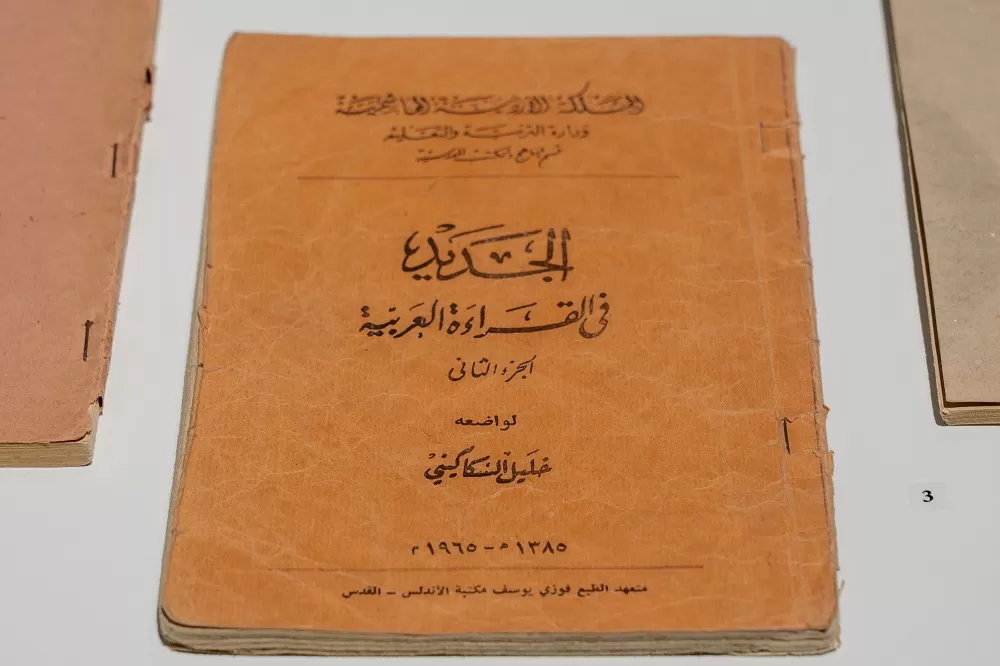 المملكة الأردنية الهاشمية
وزارة التربية والتعليم
قسم المناهج والكتب المدرسية
الجديد
في القراءة العربية
الجزء الثاني
لواضعه
خليل السكاكيني
١٣٨٥ هـ – ١٩٦٥ م
متعهد الطبع فوزي يوسف مكتبة الأندلس – القدس
3